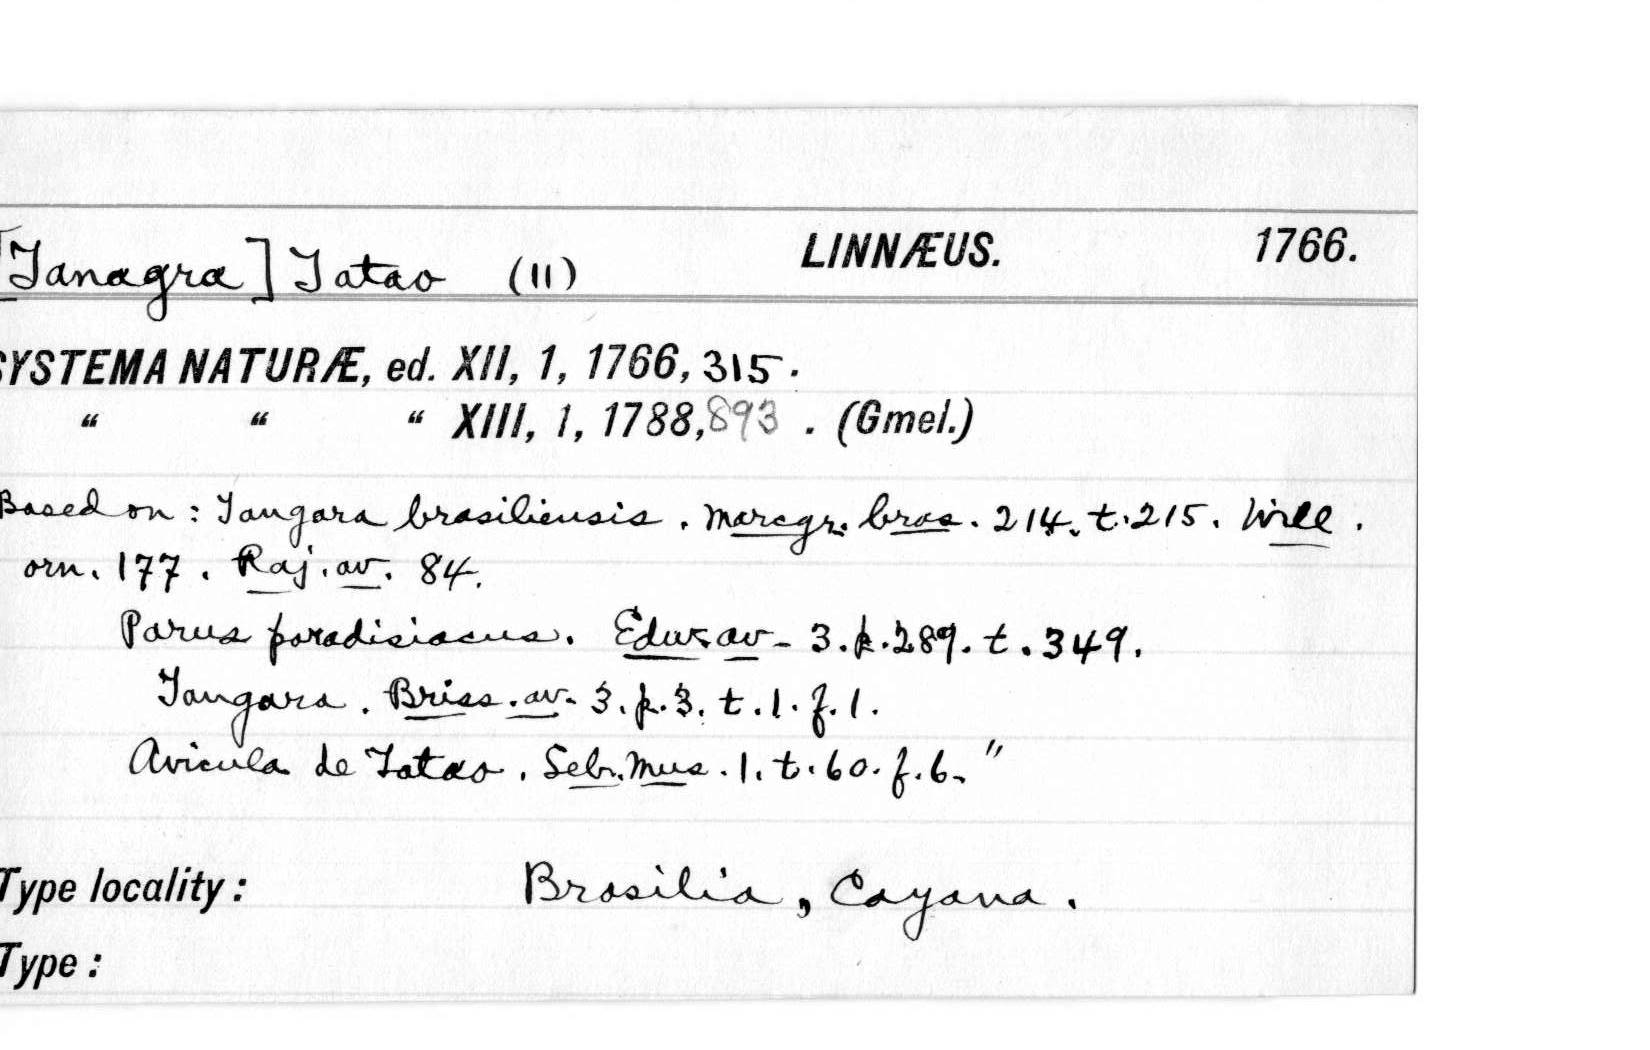 [Tanagra] Tatao (11) LINNÆUS. 1766.
SYSTEMA NATURÆ, ed. XII, 1, 1766, 315.
“ “ “ XIII, 1, 1788, 893 . (Gmel.)
Based on : Tangara brasiliensis . Marcgr. bras. 214. t. 215. Will .
orn. 177 . Raj. av. 84.
Parus paradisiacus. Edw. av - 3. p. 289. t. 349.
Tangara . Briss. av- 3. p. 3. t. 1. f. 1.
Avicula de Tatao . Seb. Mus . 1. t. 60. f. 6. "
Type locality : Brasilia, Cayana .
Type :